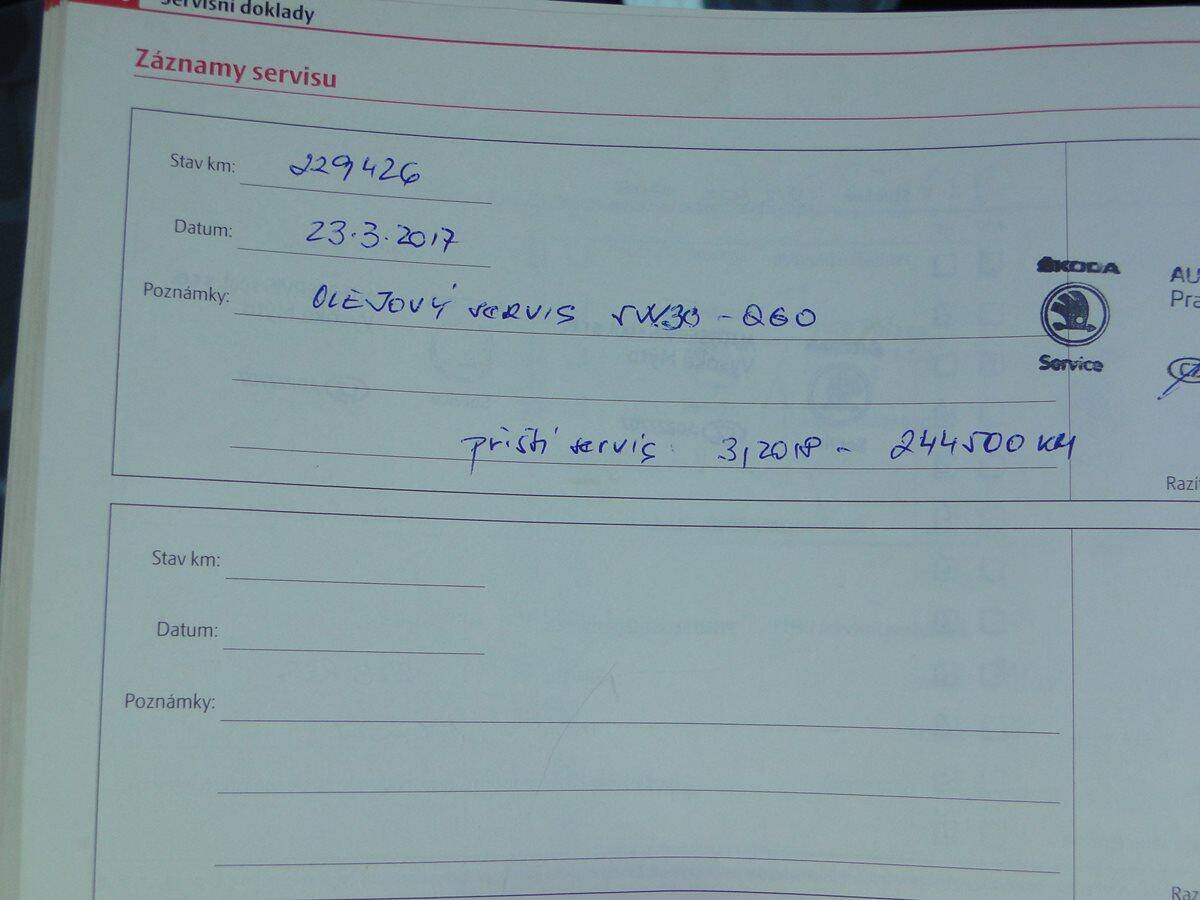 Servisní doklady
Záznamy servisu
Stav km: 229426
Datum: 23.3.2017
Poznámky: OLEJOVÝ SERVIS 5W30 - QGO
příští servis: 3,2018 - 244500 KM
ŠKODA
Service
AU
Pra
CZ
Razí
Stav km:
Datum:
Poznámky:
Raz